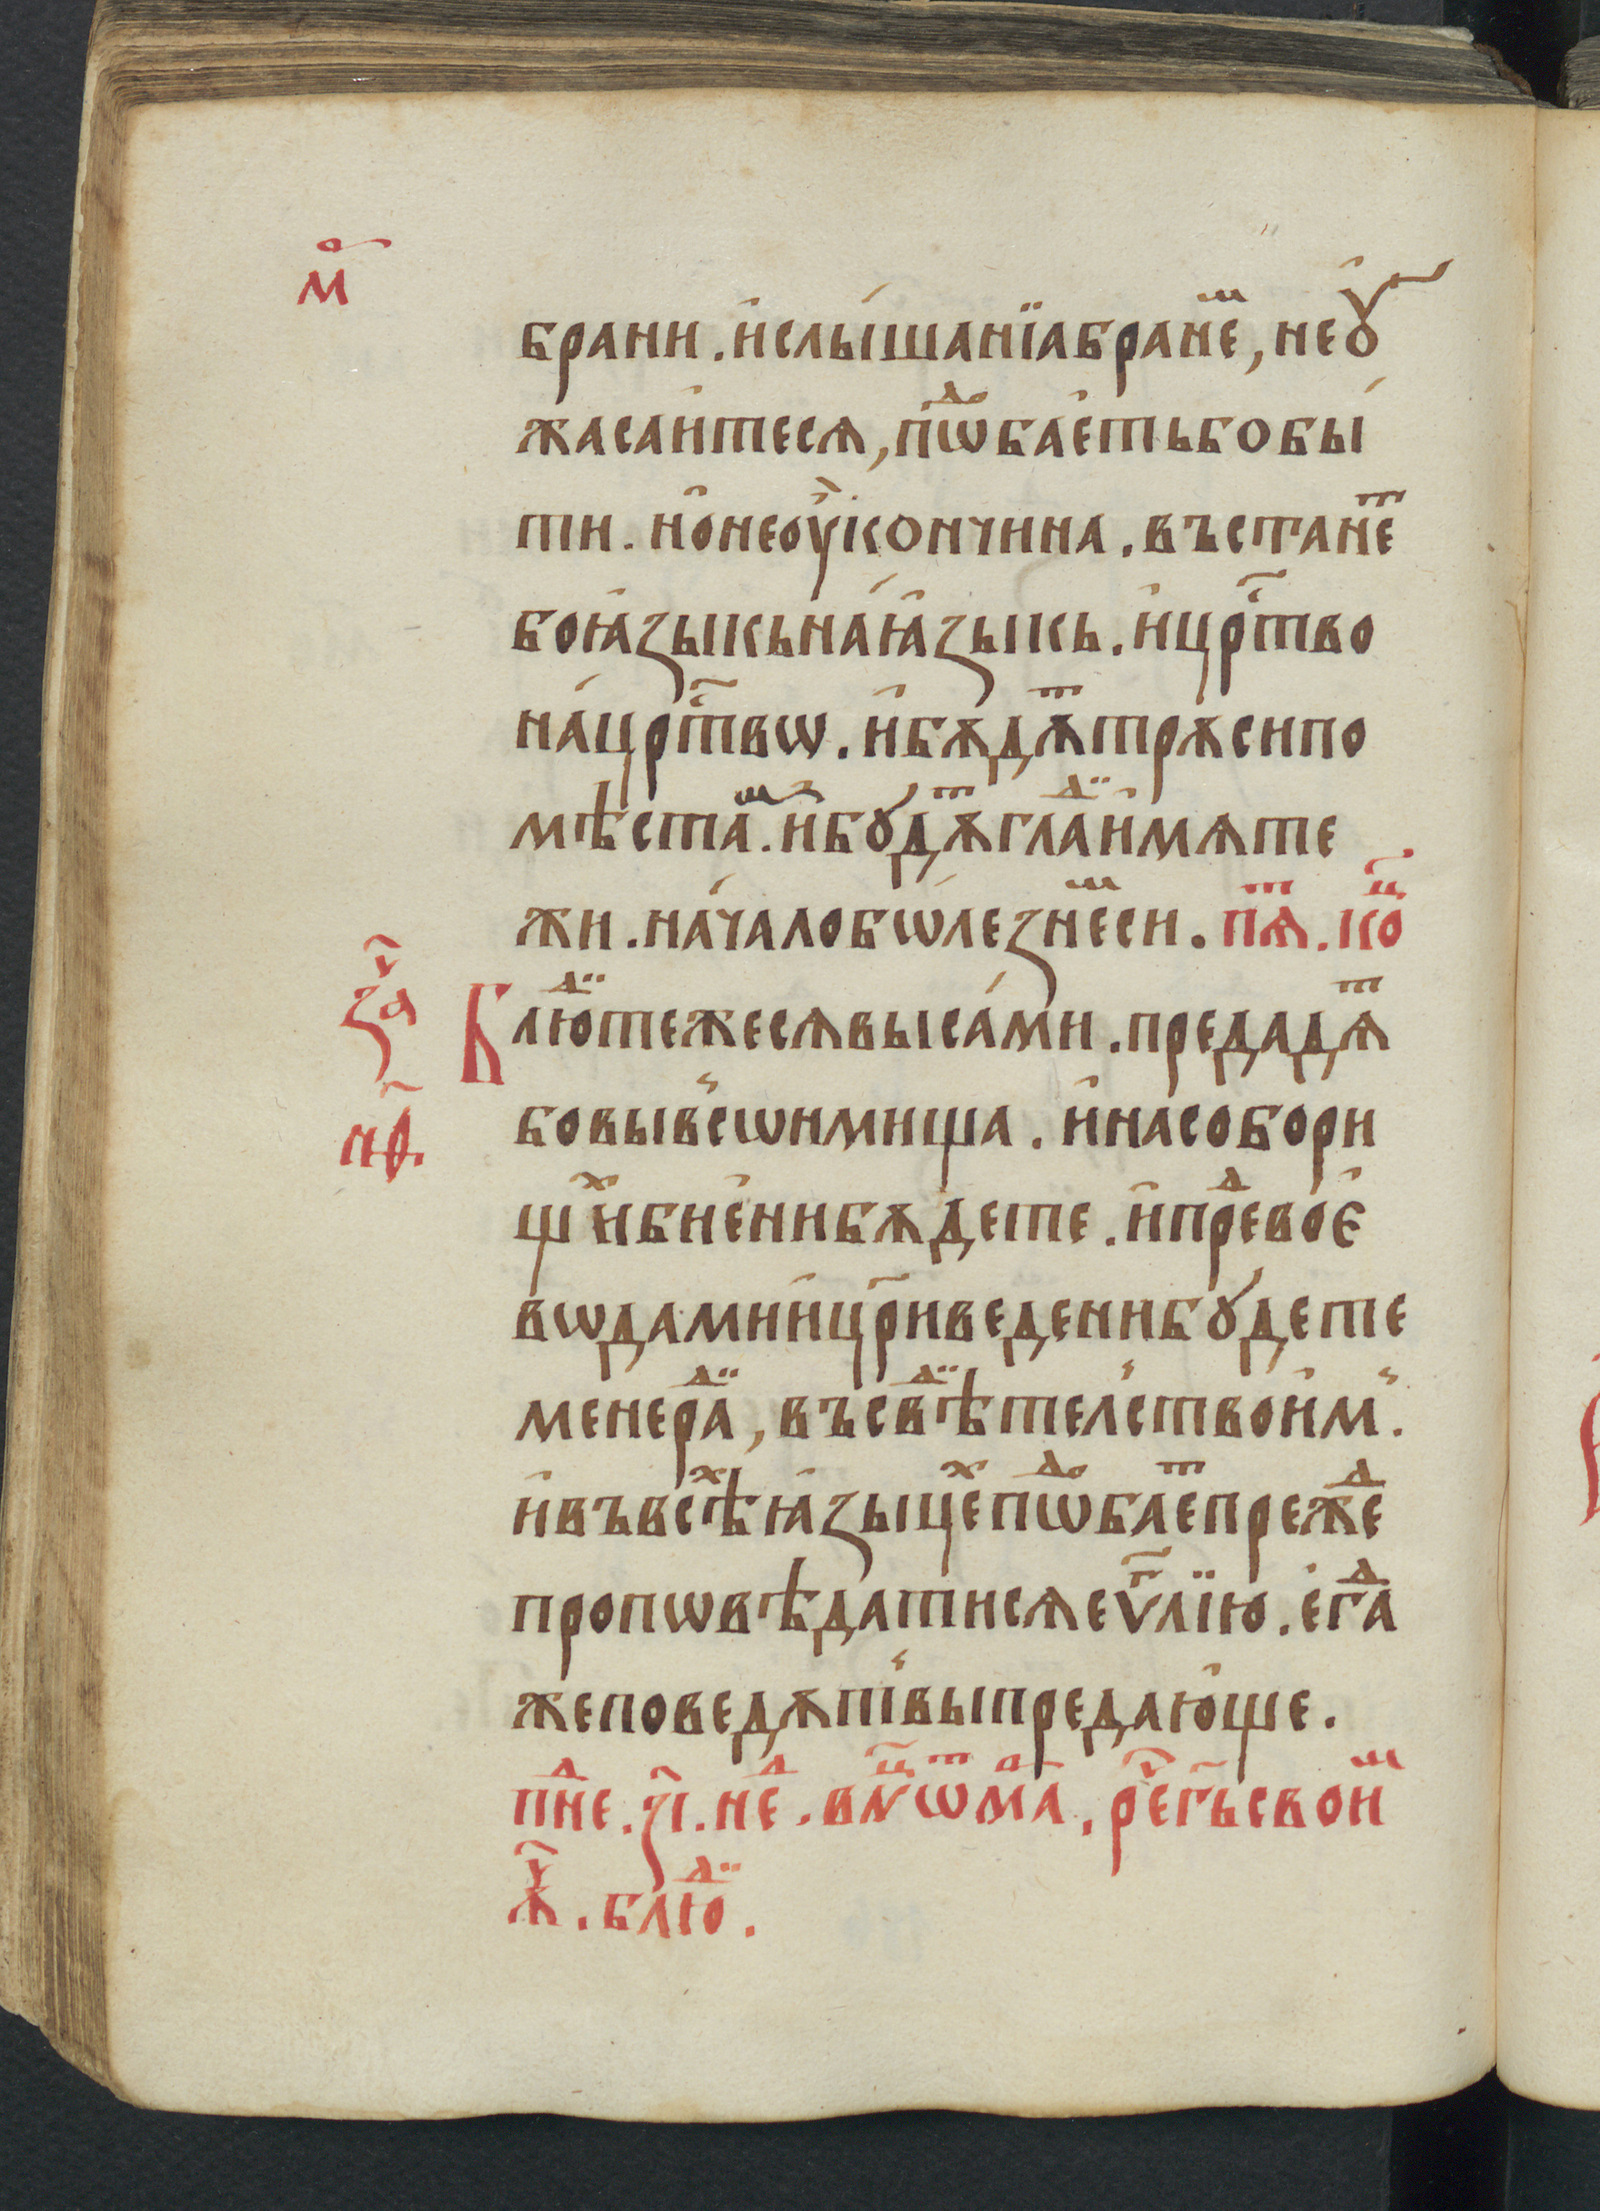 мⷪ҇
брани. и҆слы́шанїабранеⷨ҇, неꙋ҆
жаса́итесѧ, пⷣѡⷪбае҆тьбобы́
ти. но҆неоу҆кончина. въстанеⷮ
боꙗ҆зыкьна́ꙗ҆зыкь. и҆црⷭ҇тво
на́црⷭ҇твѡ. и҆бѫдѫⷮтрѫсипо
мѣстаⷨ. и҆бꙋдѫⷮглаⷣ҇и҆мѧте
жи. на́чалобѡ́лезнеⷨси. пѧⷮ. коⷰ҇
заⷱ҇
нѳ҃.
Блюⷣ҇тежесѧвысами́. предадѧⷮ
бовывⸯсѡнмища. и҆насобори
щиⷯи҆бие҆нибѫдете. и҆преⷣвое҆
вѡдамии҆цр҃иведенибꙋдете
менераⷣ҇, въсвⷣ҇ѣтелⸯствои҆мⸯ.
и҆въвсѣⷯꙗ҆зыцеⷯпⷣѡⷪбаеⷮпрежⷣе
проповѣдатисѧеѵⷢ҇лїю. е҆гⷣа
жеповедѫтⸯвыпредаю҆ще.
пⷣне. зı҃. неⷣ. вⷰ҇нⷮѡмⷪ҇а. реⷱ҇г҃ьсвоиⷨ
ѫⷱ҇. блюⷣ҇.